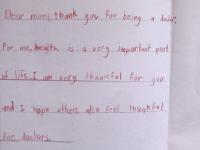 Dear mom, thank you for being a doctor.
For me, health is a very important part
of life. I am very thankful for you
and I hope others also feel thankful
for doctors.